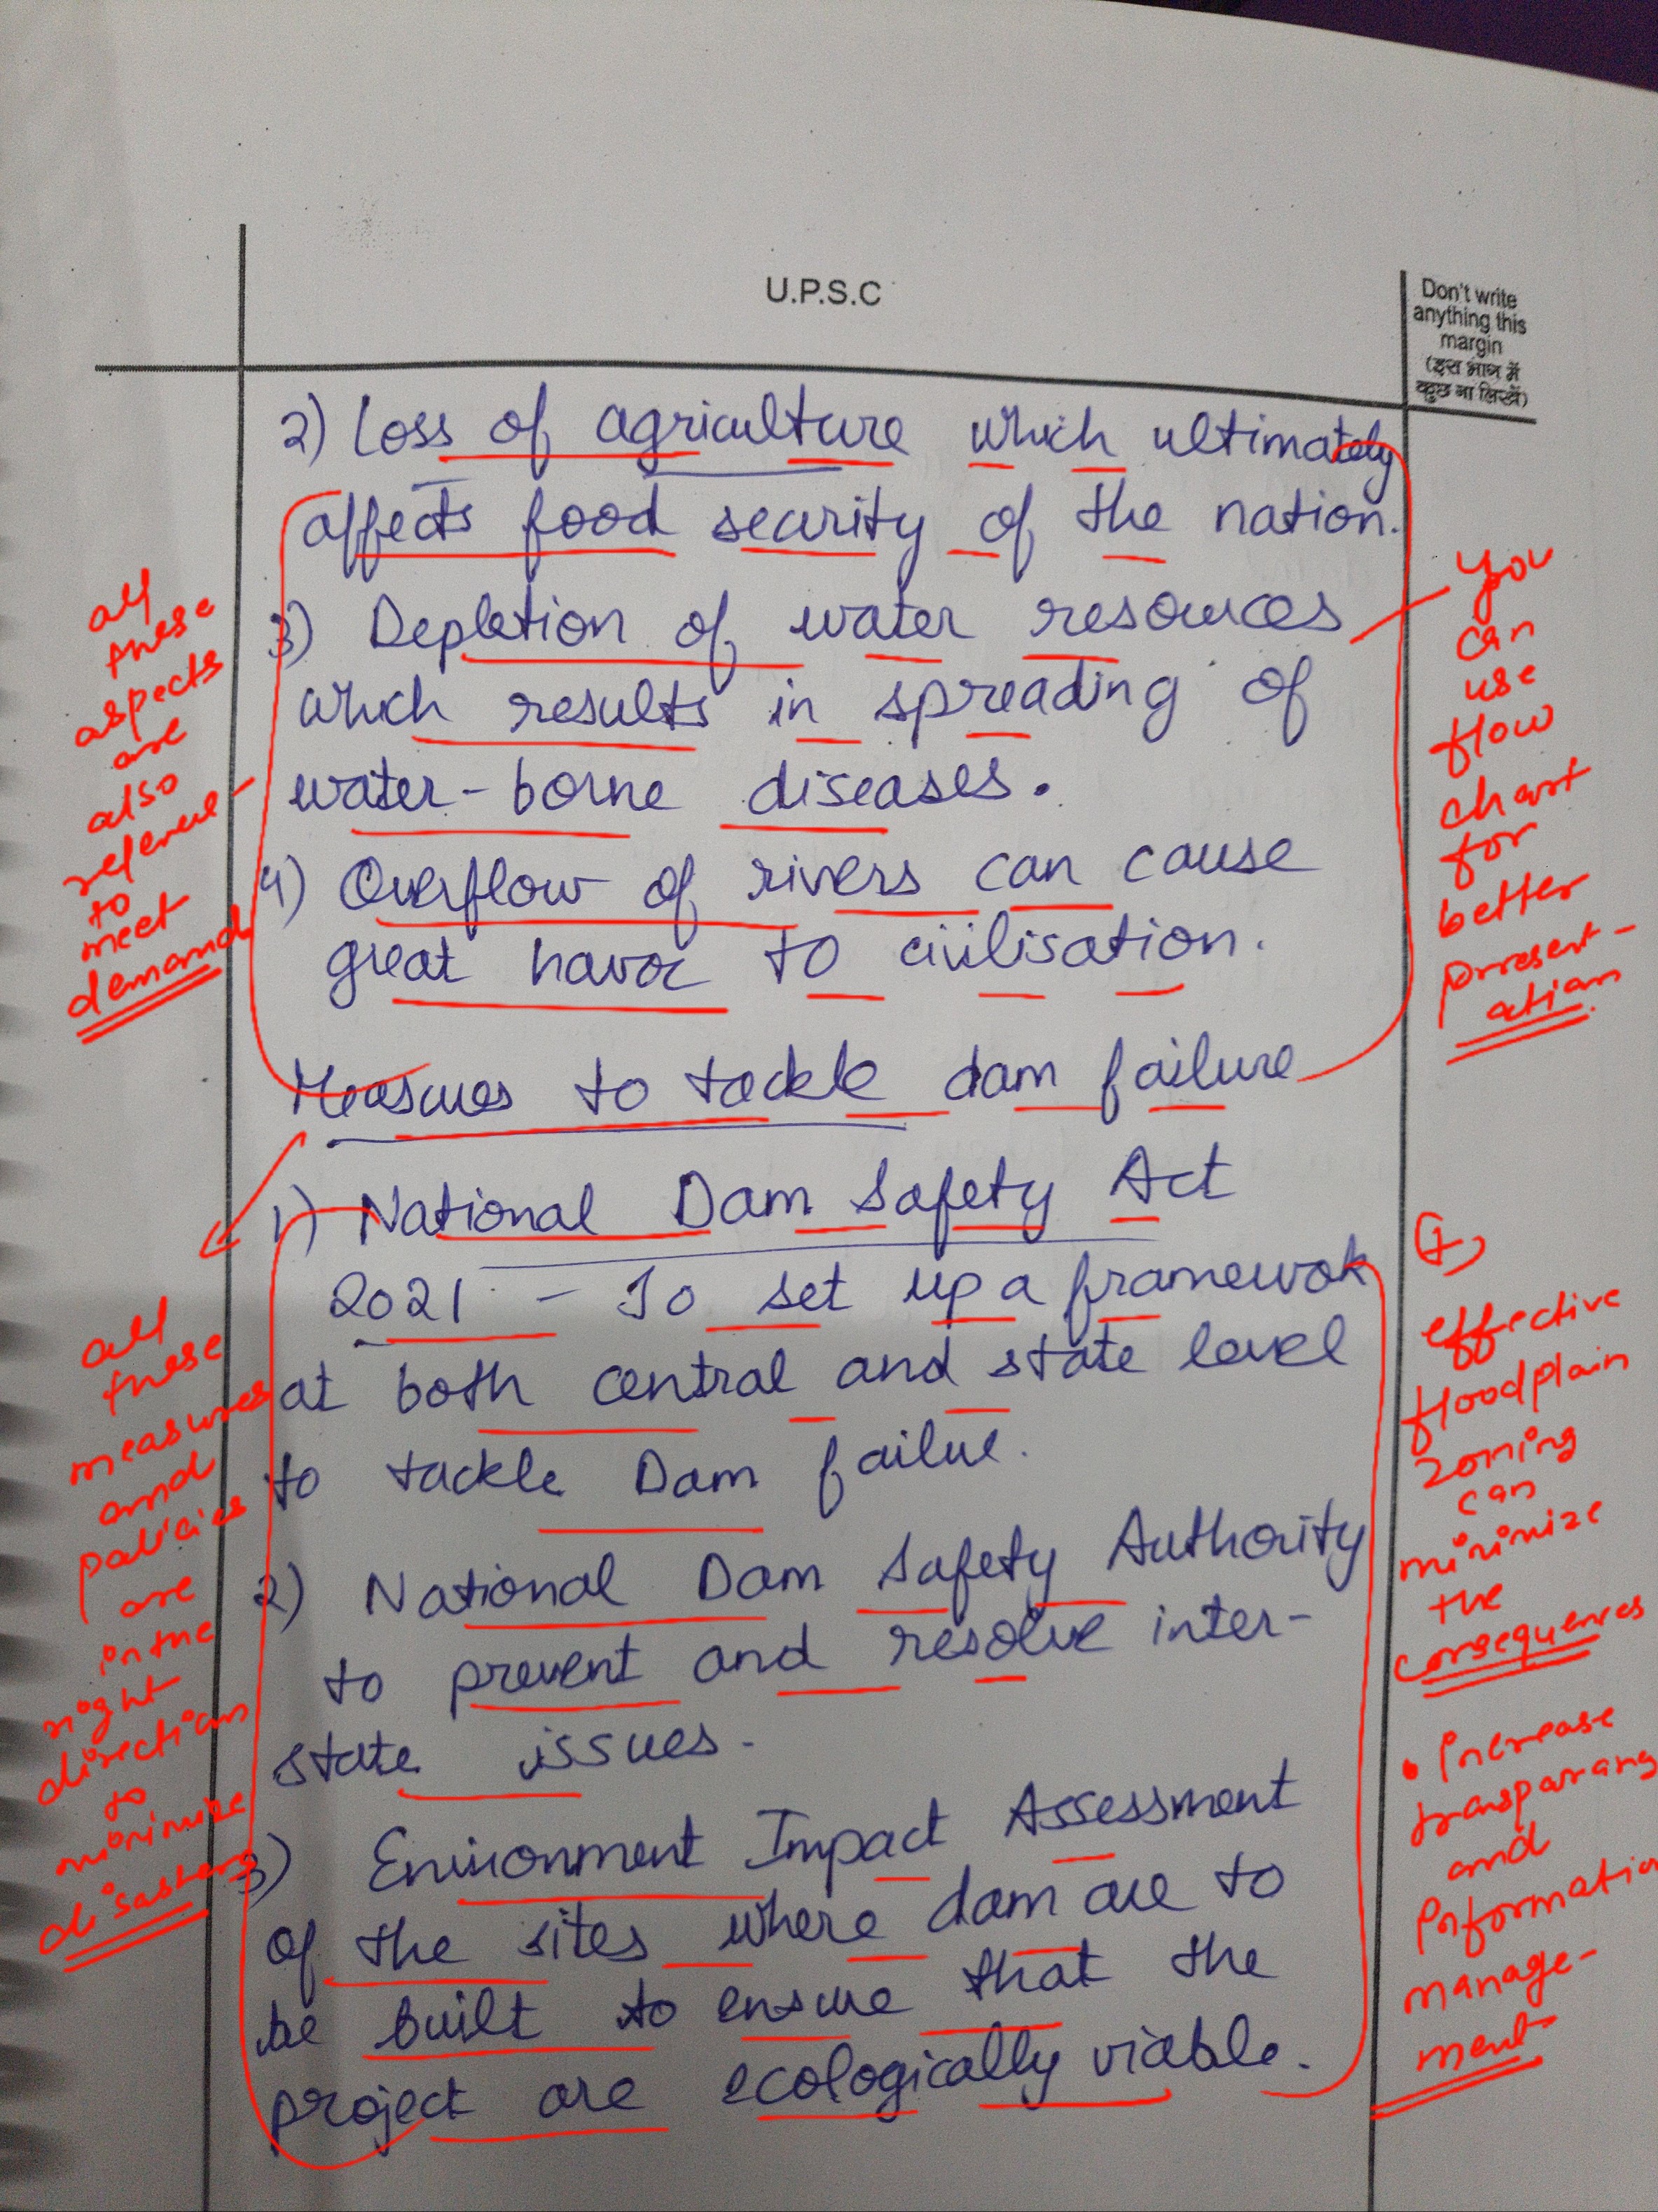 U.P.S.C
Don't write
anything this
margin
(इस भाग में
कुछ ना लिखें)
2) Loss of agriculture which ultimately
affects food security of the nation.
3) Depletion of water resources
which results in spreading of
water-borne diseases.
4) Overflow of rivers can cause
great havoc to civilisation.
Measures to tackle dam failure
1) National Dam Safety Act
2021 - To set up a framewok
at both central and state level
to tackle Dam failure.
2) National Dam Safety Authority
to prevent and resolve inter-
state issues.
3) Environment Impact Assessment
of the sites where dam are to
be built to ensure that the
project are ecologically viable.
all
these
aspects
are
also
to
meet
demand
all
these
measures
and
policies
are
in the
right
direction
to
minimize
disasters
You
can
use
flow
chart
for
better
present-
ation
(+)
effective
floodplain
zoning
can
minimize
the
consequences
• Increase
and
Information
manage-
ment